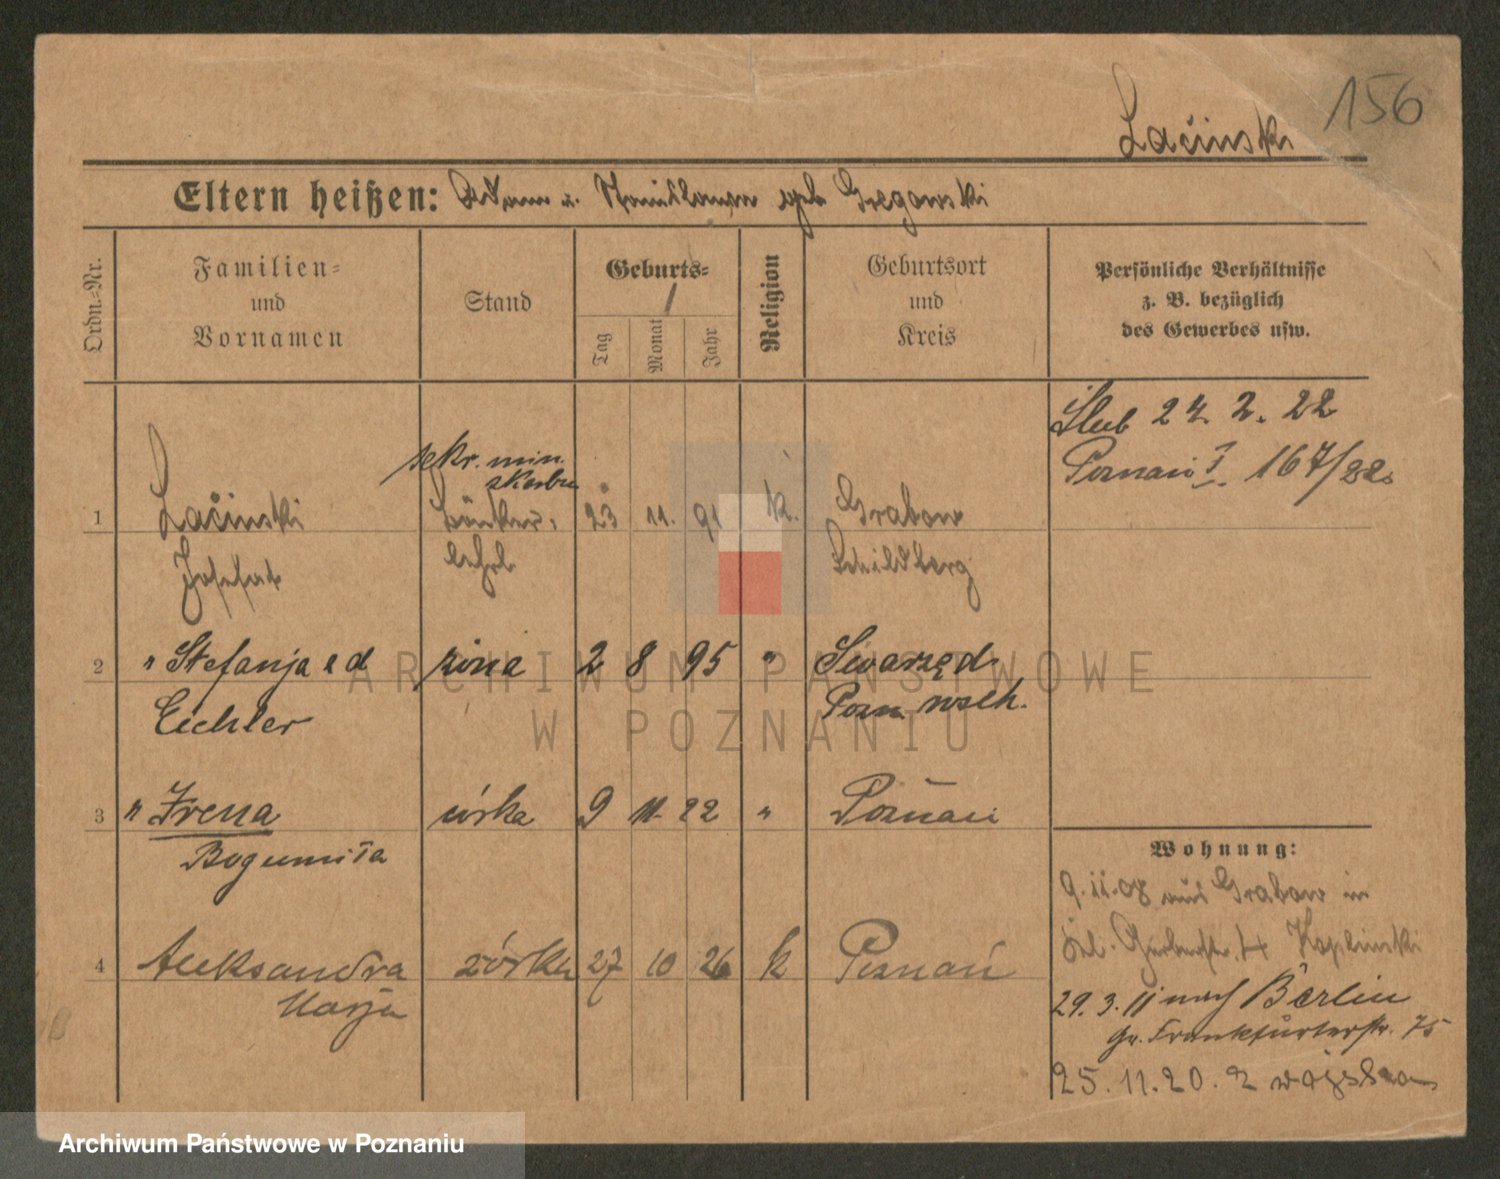 156
Laćinski
Eltern heißen: Adam u. Stanislawa geb Gregowski
Ordn.-Nr.
Familien-
und
Vornamen
Stand
Geburts-
Tag
Monat
Jahr
Religion
Geburtsort
und
Kreis
Persönliche Verhältnisse
z. B. bezüglich
des Gewerbes usw.
Ślub 24. 2. 22
Poznań I. 167/22.
sekr. min.
skarbu
1 Laćinski 23 11. 91 k. Grabow
Josefat lehrl Schildberg
2 " Stefanja z d żona 2 8 95 " Swarzędz
Eichler Pozn. wsch.
3 " Irena córka 9 11 22 " Poznań
Bogumiła
4 Aleksandra córka 27 10 26 k Poznań
Marja
Wohnung:
9.11.08 aus Grabow in
Gerberstr. 4 Koplinski
29.3.11 nach Berlin
Gr. Frankfurterstr. 75
25.11.20. z wojska
ARCHIWUM PAŃSTWOWE
W POZNANIU
Archiwum Państwowe w Poznaniu